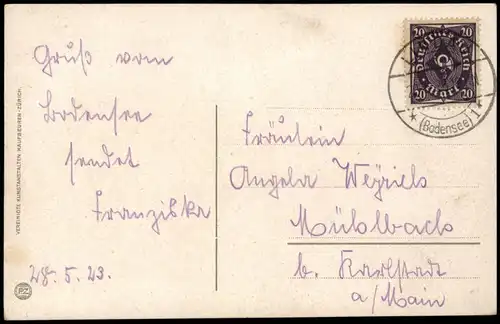 Gruß vom
Bodensee
sendet
Franziska
28.5.23.
VEREINIGTE KUNSTANSTALTEN KAUFBEUREN-ZÜRICH.
PZ
20 20
Deutsches Reich
20 Mark 20
(Bodensee)
Fräulein
Angela Weyriels
Mühlbach
b. Karlstadt
a/Main